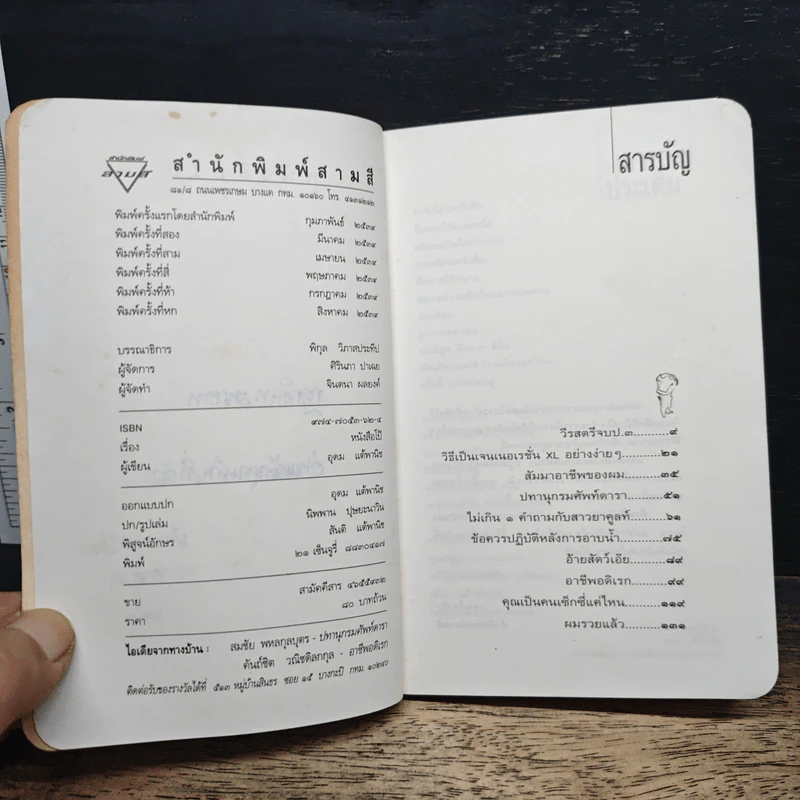 สำนักพิมพ์
สามสี
สำนักพิมพ์สามสี
๘๑/๘ ถนนเพชรเกษม บางแค กทม. ๑๐๑๖๐ โทร. ๔๑๓๑๒๑๒
พิมพ์ครั้งแรกโดยสำนักพิมพ์ กุมภาพันธ์ ๒๕๓๙
พิมพ์ครั้งที่สอง มีนาคม ๒๕๓๙
พิมพ์ครั้งที่สาม เมษายน ๒๕๓๙
พิมพ์ครั้งที่สี่ พฤษภาคม ๒๕๓๙
พิมพ์ครั้งที่ห้า กรกฎาคม ๒๕๓๙
พิมพ์ครั้งที่หก สิงหาคม ๒๕๓๙
บรรณาธิการ พิกุล วิภาสประทีป
ผู้จัดการ ศิรินภา ปาเฉย
ผู้จัดทำ จินตนา ผลยงค์
ISBN ๙๗๔-๗๐๕๓-๖๒-๔
เรื่อง หนังสือโป๊
ผู้เขียน อุดม แต้พานิช
ออกแบบปก อุดม แต้พานิช
ปก/รูปเล่ม นิพพาน ปุษยะนาวิน
พิสูจน์อักษร สันติ แต้พานิช
พิมพ์ ๒๑ เซ็นจูรี่ ๘๘๓๐๔๑๗
ขาย สามัคคีสาร ๔๖๕๕๙๓๒
ราคา ๘๐ บาทถ้วน
ไอเดียจากทางบ้าน : สมชัย พหลกุลบุตร - ปทานุกรมศัพท์ดารา
ดันถ์ชิต วณิชดิลกกุล - อาชีพอดิเรก
ติดต่อรับของรางวัลได้ที่ ๕๑๓ หมู่บ้านสินธร ซอย ๑๕ บางกะปิ กทม. ๑๐๒๔๐
สารบัญ
วีรสตรีจบป.๓..........๙
วิธีเป็นเจนเนอเรชั่น XL อย่างง่ายๆ..........๒๑
สัมมาอาชีพของผม..........๓๕
ปทานุกรมศัพท์ดารา..........๕๑
ไม่เกิน ๑ คำถามกับสาวยาคูลท์..........๖๑
ข้อควรปฏิบัติหลังการอาบน้ำ..........๗๕
อ้ายสัตว์เอ๊ย..........๘๙
อาชีพอดิเรก..........๙๙
คุณเป็นคนเซ็กซี่แค่ไหน..........๑๑๙
ผมรวยแล้ว..........๑๓๑